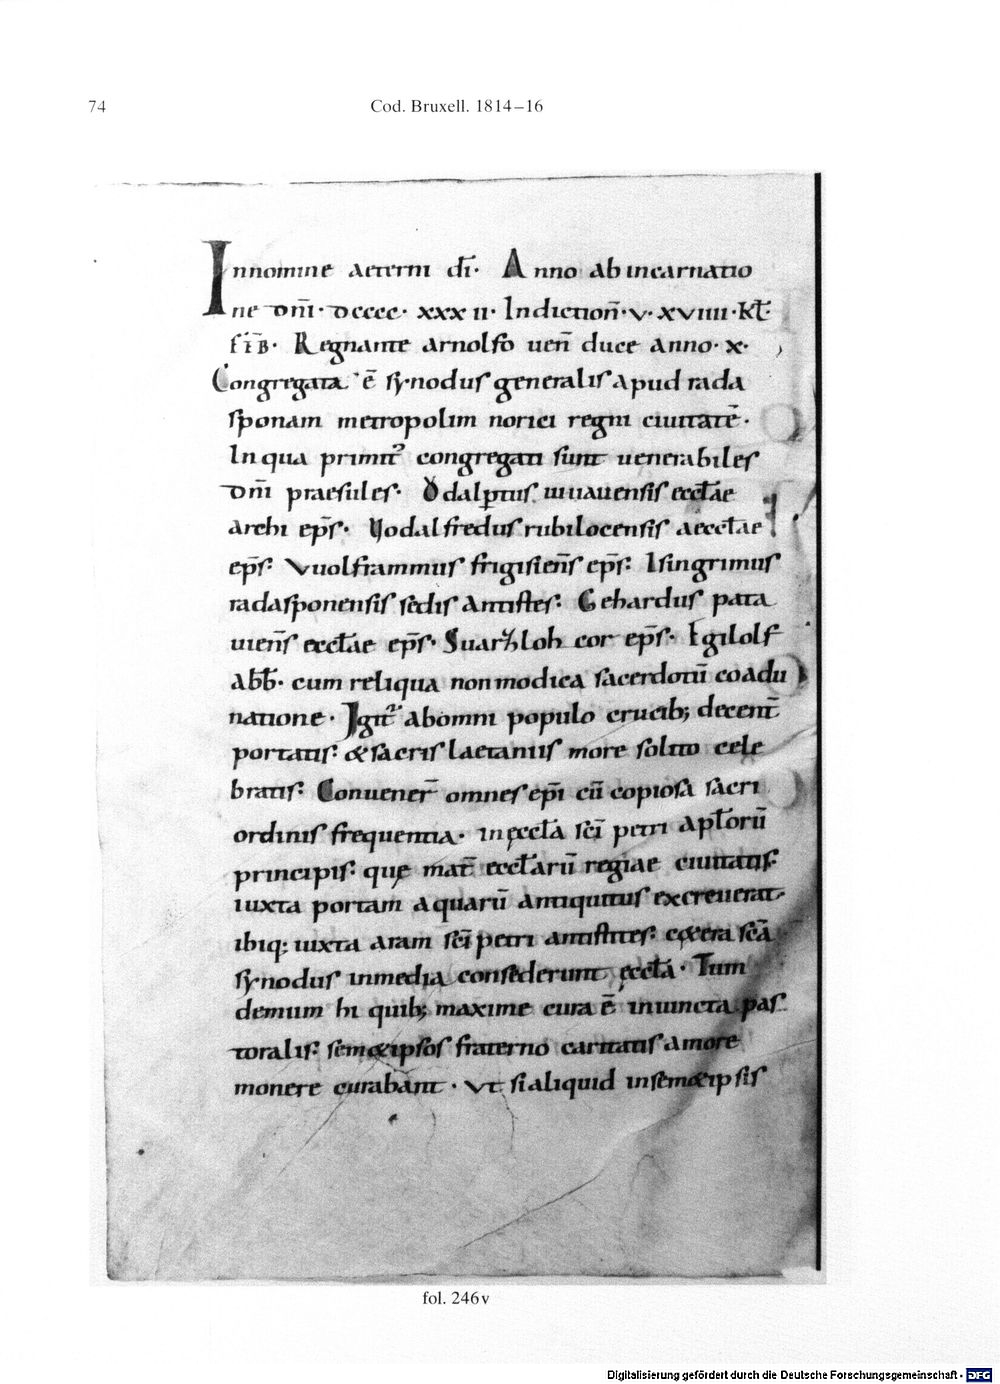 74
Cod. Bruxell. 1814–16
Innomine aeterni dī· Anno ab incarnatio
ne dnī· dcccc· xxx ii· Indictioñ· v· xviiii· kł·
Regnante arnolfo ueñ duce anno· x·
Congregata ē synodus generalis apud rada
sponam metropolim norici regni ciuitatē·
In qua primit᷒ congregati sunt uenerabiles
dnī praesules· Odalꝑtus iuuauensis eccłae
archi ep̄s· Uodalfredus rubilocensis aeccłae
ep̄s· Vuolframmus frigisieñs ep̄s· Isingrimus
radasponensis sedis antistes· Gehardus pata
uieñs eccłae ep̄s· Suarzloh cor ep̄s· Egilolf
abb̄· cum reliqua non modica sacerdotū coadu
natione· Igit᷒ abomni populo crucib; decent̄
portatis· & sacris laetaniis more solito cele
bratis· Conuener̄ omnes ep̄i cū copiosa sacri
ordinis frequentia· in ęccła scī petri apłorū
principis· quę mat̄ eccłarū regiae ciuitatis·
iuxta portam aquarū antiquitus excreuerat·
ibiq; iuxta aram scī petri antistites· c&era scā
synodus inmedia consederunt ęccła· Tum
demum hi quib; maxime cura ē iniuncta pas
toralis· sem&ipsos fraterno caritatis amore
monere curabant· vt si aliquid insem&ipsis
fol. 246v
Digitalisierung gefördert durch die Deutsche Forschungsgemeinschaft - DFG